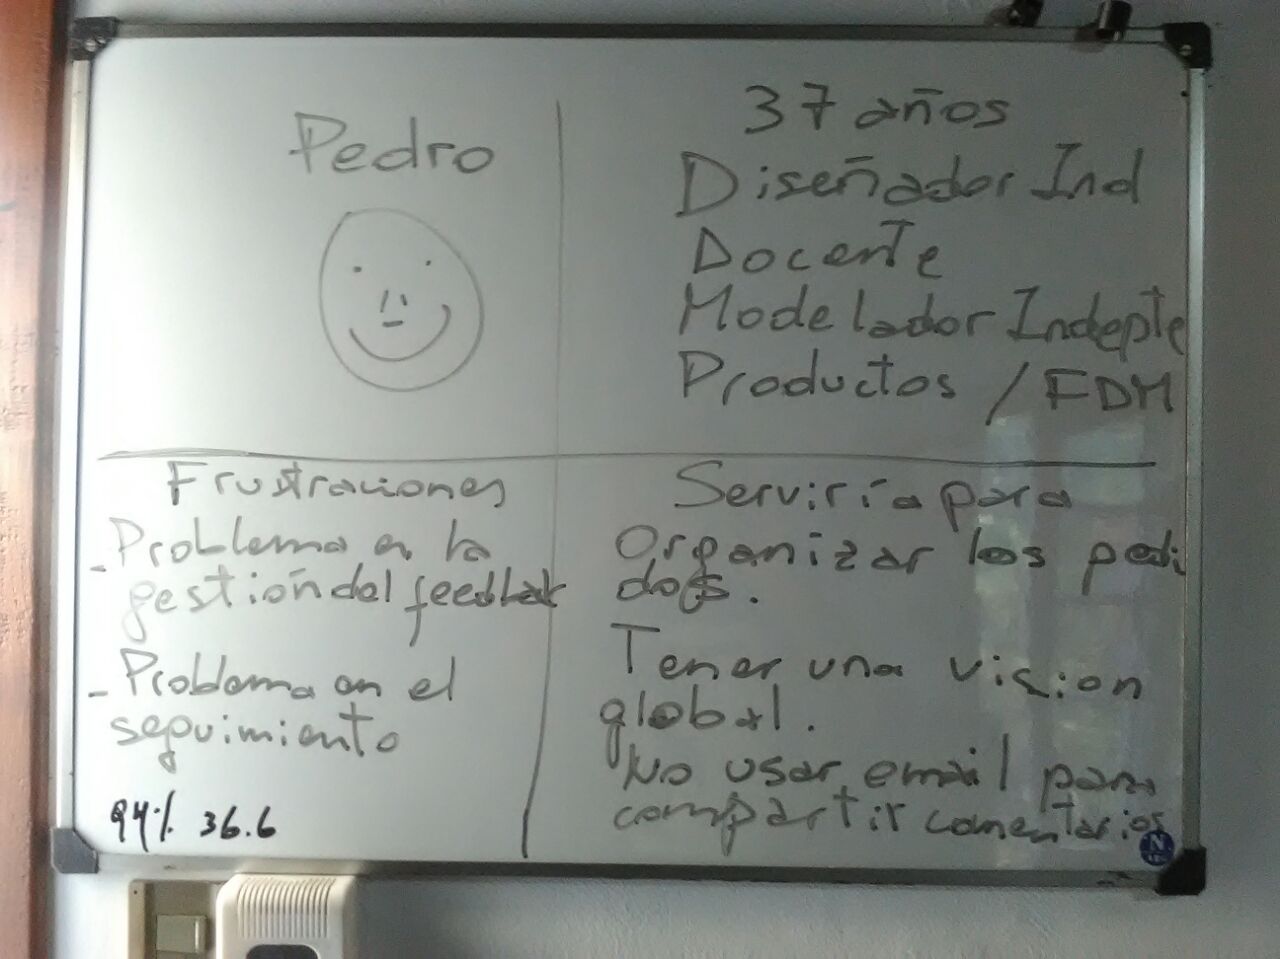 Pedro
37 años
Diseñador Ind
Docente
Modelador Indepte
Productos / FDM
Frustraciones
- Problema en la
gestión del feedbak
- Problema en el
seguimiento
94% 36.6
Serviría para
Organizar los pedi
dos.
Tener una vision
global.
No usar email para
compartir comentarios
N